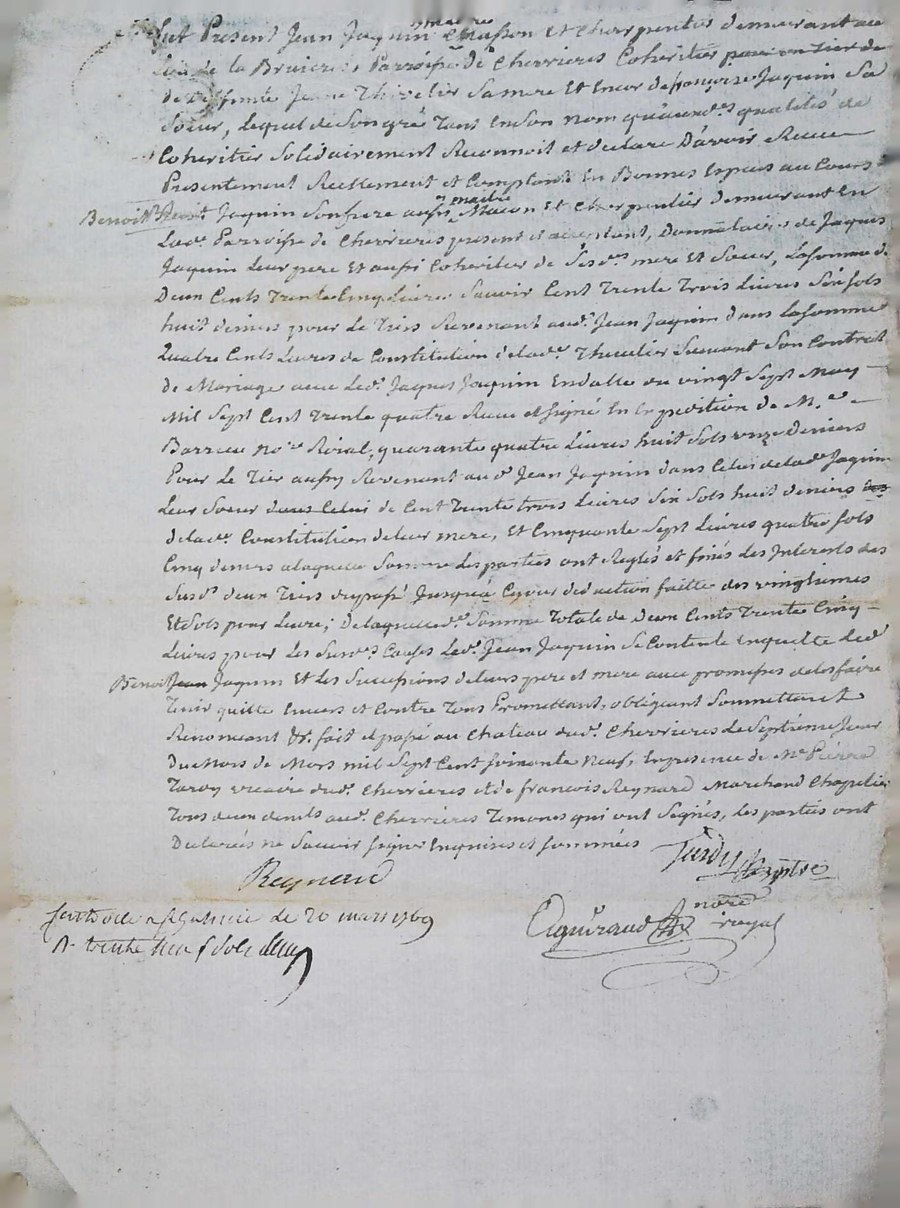 maitre
fut Present Jean Jaquin Masson et Cherpentier demeurant au
lieu de la Bruiere Parroisse de Cherrieres Coheritier pour un tier de
deffunte Jeanne Thivelier Sa mere Et Encor de françoise Jaquin Sa
Soeur, Lequel de Son gré tant En Son nom qu'aux qualités de
Coheritier Solidairement Reconnoit et declare D'avoir Receu
Presentement Reellement et Comptant En Bonnes Especes au Cours
maitre
Benoit Jaquin Son frere aussi Macon Et Cherpentier demeurant En
Lade. Parroisse de Cherrieres present et acceptant, Donnataire de Jaques
Jaquin Leur pere Et aussi Coheritier de Sesdes mere et Soeur, La Somme de
Deux Cents Trente Cinq Livres Savoir Cent Trente Trois Livres Six Sols
huit deniers pour Le Tiers Revenant aud. Jean Jaquin dans La Somme
Quatre Cents Livres de Constitution de lade. Thivelier Suivant Son Contrat
de Mariage avec Led. Jaques Jaquin En datte du vingt Sept May
Mil Sept Cent Trente quatre Receu et Signé En Expedition de M.e
Barrieu nore Roial, quarante quatre Livres huit Sols onze Deniers
Pour Le Tier aussy Revenant aud. Jean Jaquin dans Celui de lade Jaquin
Leur Soeur dans Celui de Cent Trente trois Livres Six Sols huit deniers
de lade. Constitution de leur mere, Et Cinquante Sept Livres quatre Sols
Cinq deniers a laquelle Somme les parties ont Reglés et finés Les Interets des
Susds deux Tiers du passé Jusqu'à Ce jour deduction faitte des vingtiemes
Et Sols pour Livre; De laquelle Somme Totale de Deux Cents Trente Cinq
Livres pour Les Susdes Causes Led. Jean Jaquin Se Contente En quitte Led
Benoit Jean Jaquin Et Les Successions de leurs pere et mere avec promesses de les faire
Tenir quitte Envers et Contre Tous Promettant, obligeant Soumettant Et
Renonceant &c. fait et passé au Chateau dud. Cherrieres Le Septiéme Jour
Du Mois de Mars mil Sept Cent Soixante Neuf, En presence de Me Pierre
Tardy vicaire dud. Cherriéres et de francois Reynard Marchand Chapelier
Tous deux dud. Cherriéres Temoins qui ont Signés, Les parties ont
Declarées ne Savoir Signer Enquises et Sommées
Tardy
Reynard
nore
Royal
a St Galmier le 20 mars 1769
R. trente neuf sols